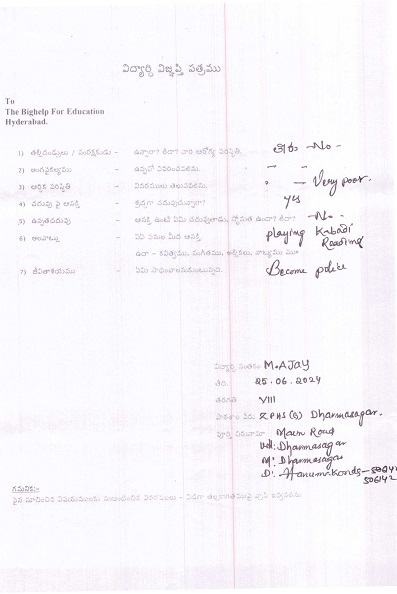 విద్యార్థి విజ్ఞప్తి పత్రము
To
The Bighelp For Education
Hyderabad.
1) తల్లిదండ్రులు / సంరక్షకుడు - ఉన్నారా? లేదా? వారి ఆరోగ్య పరిస్థితి. No -
2) అంగవైకల్యము - ఉన్నచో వివరించవలెను. - -
3) ఆర్థిక పరిస్థితి - వివరములు తెలుపవలెను. - Very poor.
4) చదువు పై ఆసక్తి - శ్రద్ధగా చదువుచున్నారా? yes
5) ఉన్నతచదువు - ఆసక్తి ఉంటే ఏమి చదువుతాడు, స్తోమత ఉందా? లేదా? - No -
6) అలవాట్లు - ఏఏ పనుల మీద ఆసక్తి. playing Kabadi
ఉదా - కవిత్వము, సంగీతము, అల్లికలు, నాట్యము Reading
7) జీవితాశయము - ఏమి సాధించాలనుకుంటున్నది. Become police
విద్యార్థి సంతకం M.AJAY
తేది. 25.06.2024
తరగతి VIII
పాఠశాల పేరు Z.P.H.S (B) Dharmasagar.
పూర్తి చిరునామా Main Road
Vill: Dharmasagar
M: Dharmasagar
D: Hanumakonda -
506142
గమనిక:-
పైన సూచించిన విషయములకు సంబంధించిన వివరములు -